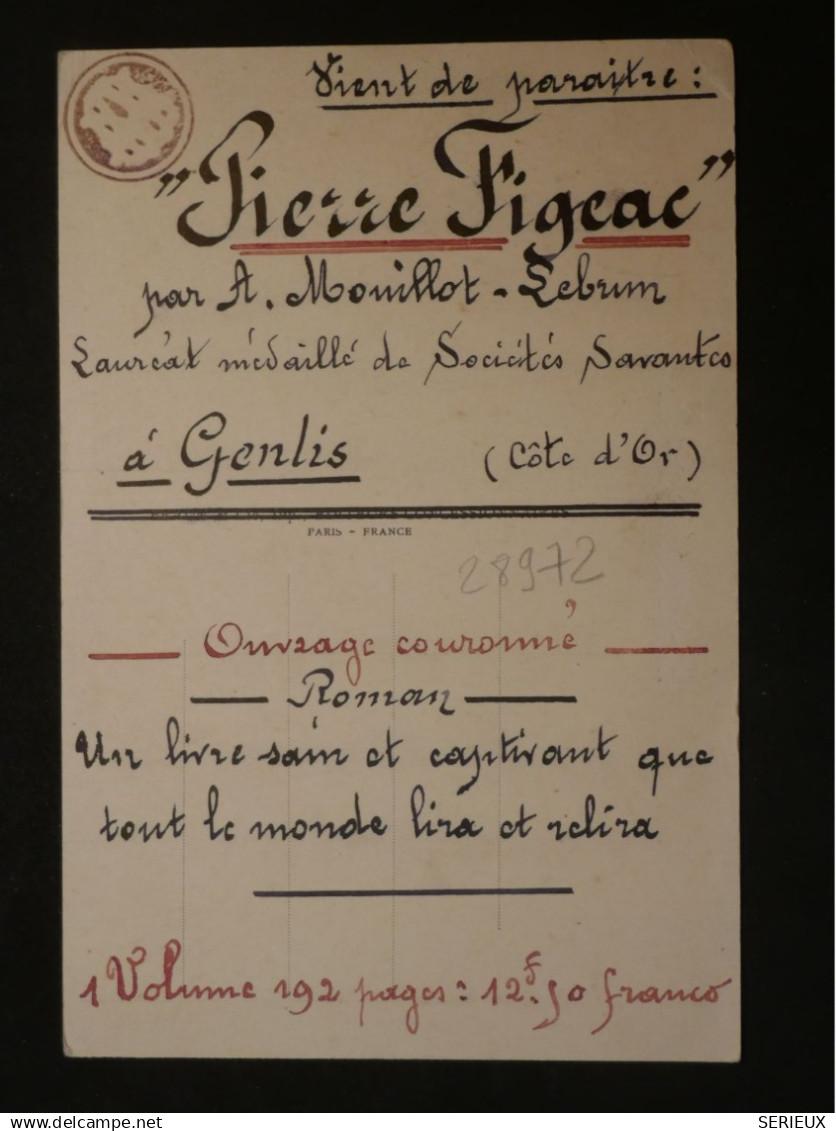 Vient de paraitre :
"Pierre Figeac"
par A. Mouillot - Lebrun
Lauréat médaillé de Sociétés Savantes
à Genlis (Côte d'Or)
PARIS - FRANCE
28972
Ouvrage couronné
Roman
Un livre sain et captivant que
tout le monde lira et relira
1 Volume 192 pages : 12f.50 franco
SERIEUX